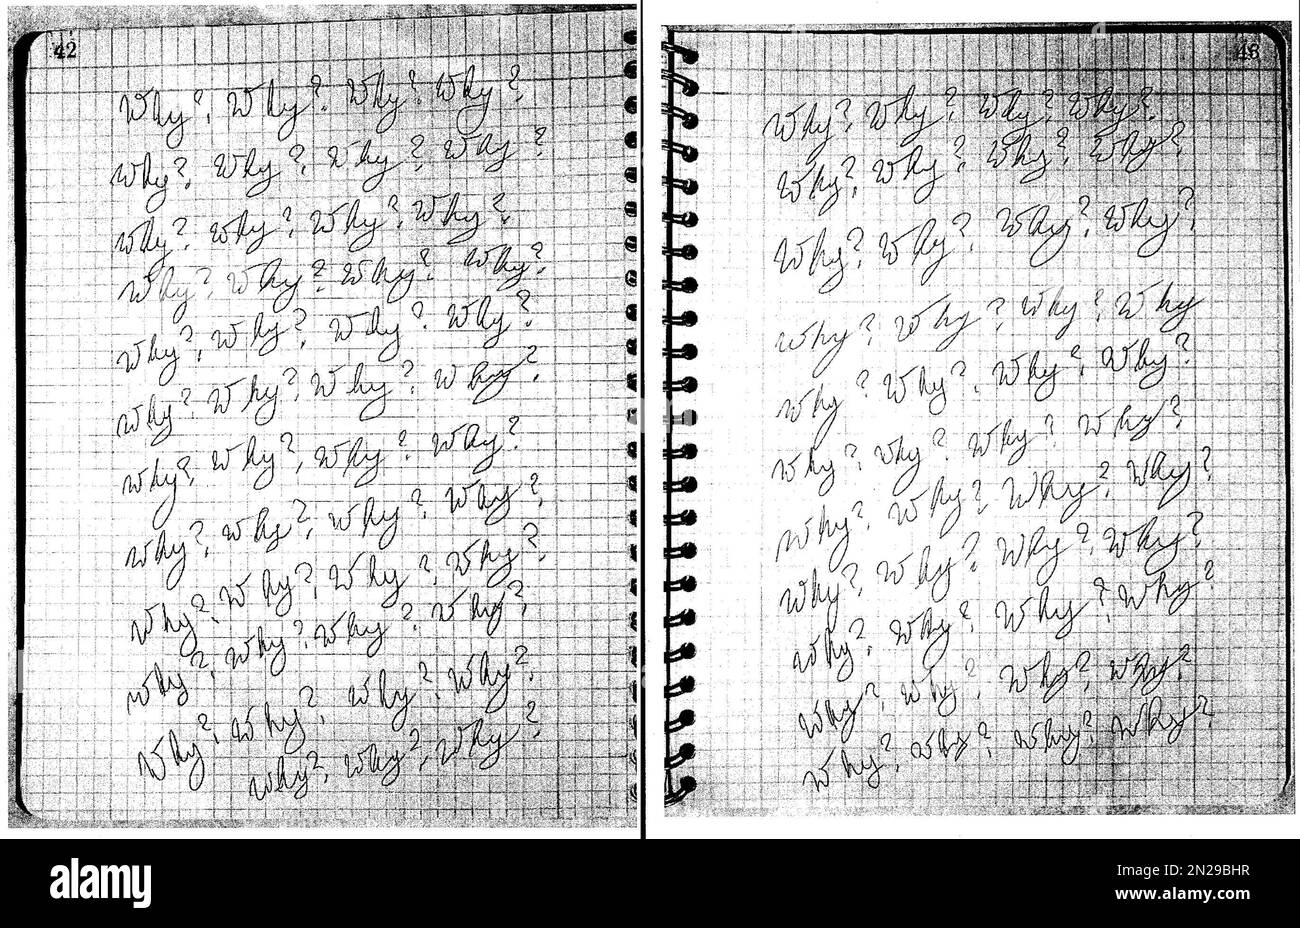 42
Why? Why? Why? Why?
Why? Why? Why? Why?
Why? Why? Why? Why?
Why? Why? Why? Why?
Why? Why? Why? Why?
Why? Why? Why? Why?
Why? Why? Why? Why?
Why? Why? Why? Why?
Why? Why? Why? Why?
Why? Why? Why? Why?
Why? Why? Why? Why?
Why? Why? Why?
Why? Why? Why? Why?
Why? Why? Why? Why?
Why? Why? Why? Why?
Why? Why? Why? Why
Why? Why? Why? Why?
Why? Why? Why? Why?
Why? Why? Why? Why?
Why? Why? Why? Why?
Why? Why? Why? Why?
Why? Why? Why? Why?
Why? Why? Why? Why?
alamy
Image ID: 2N29BHR
www.alamy.com